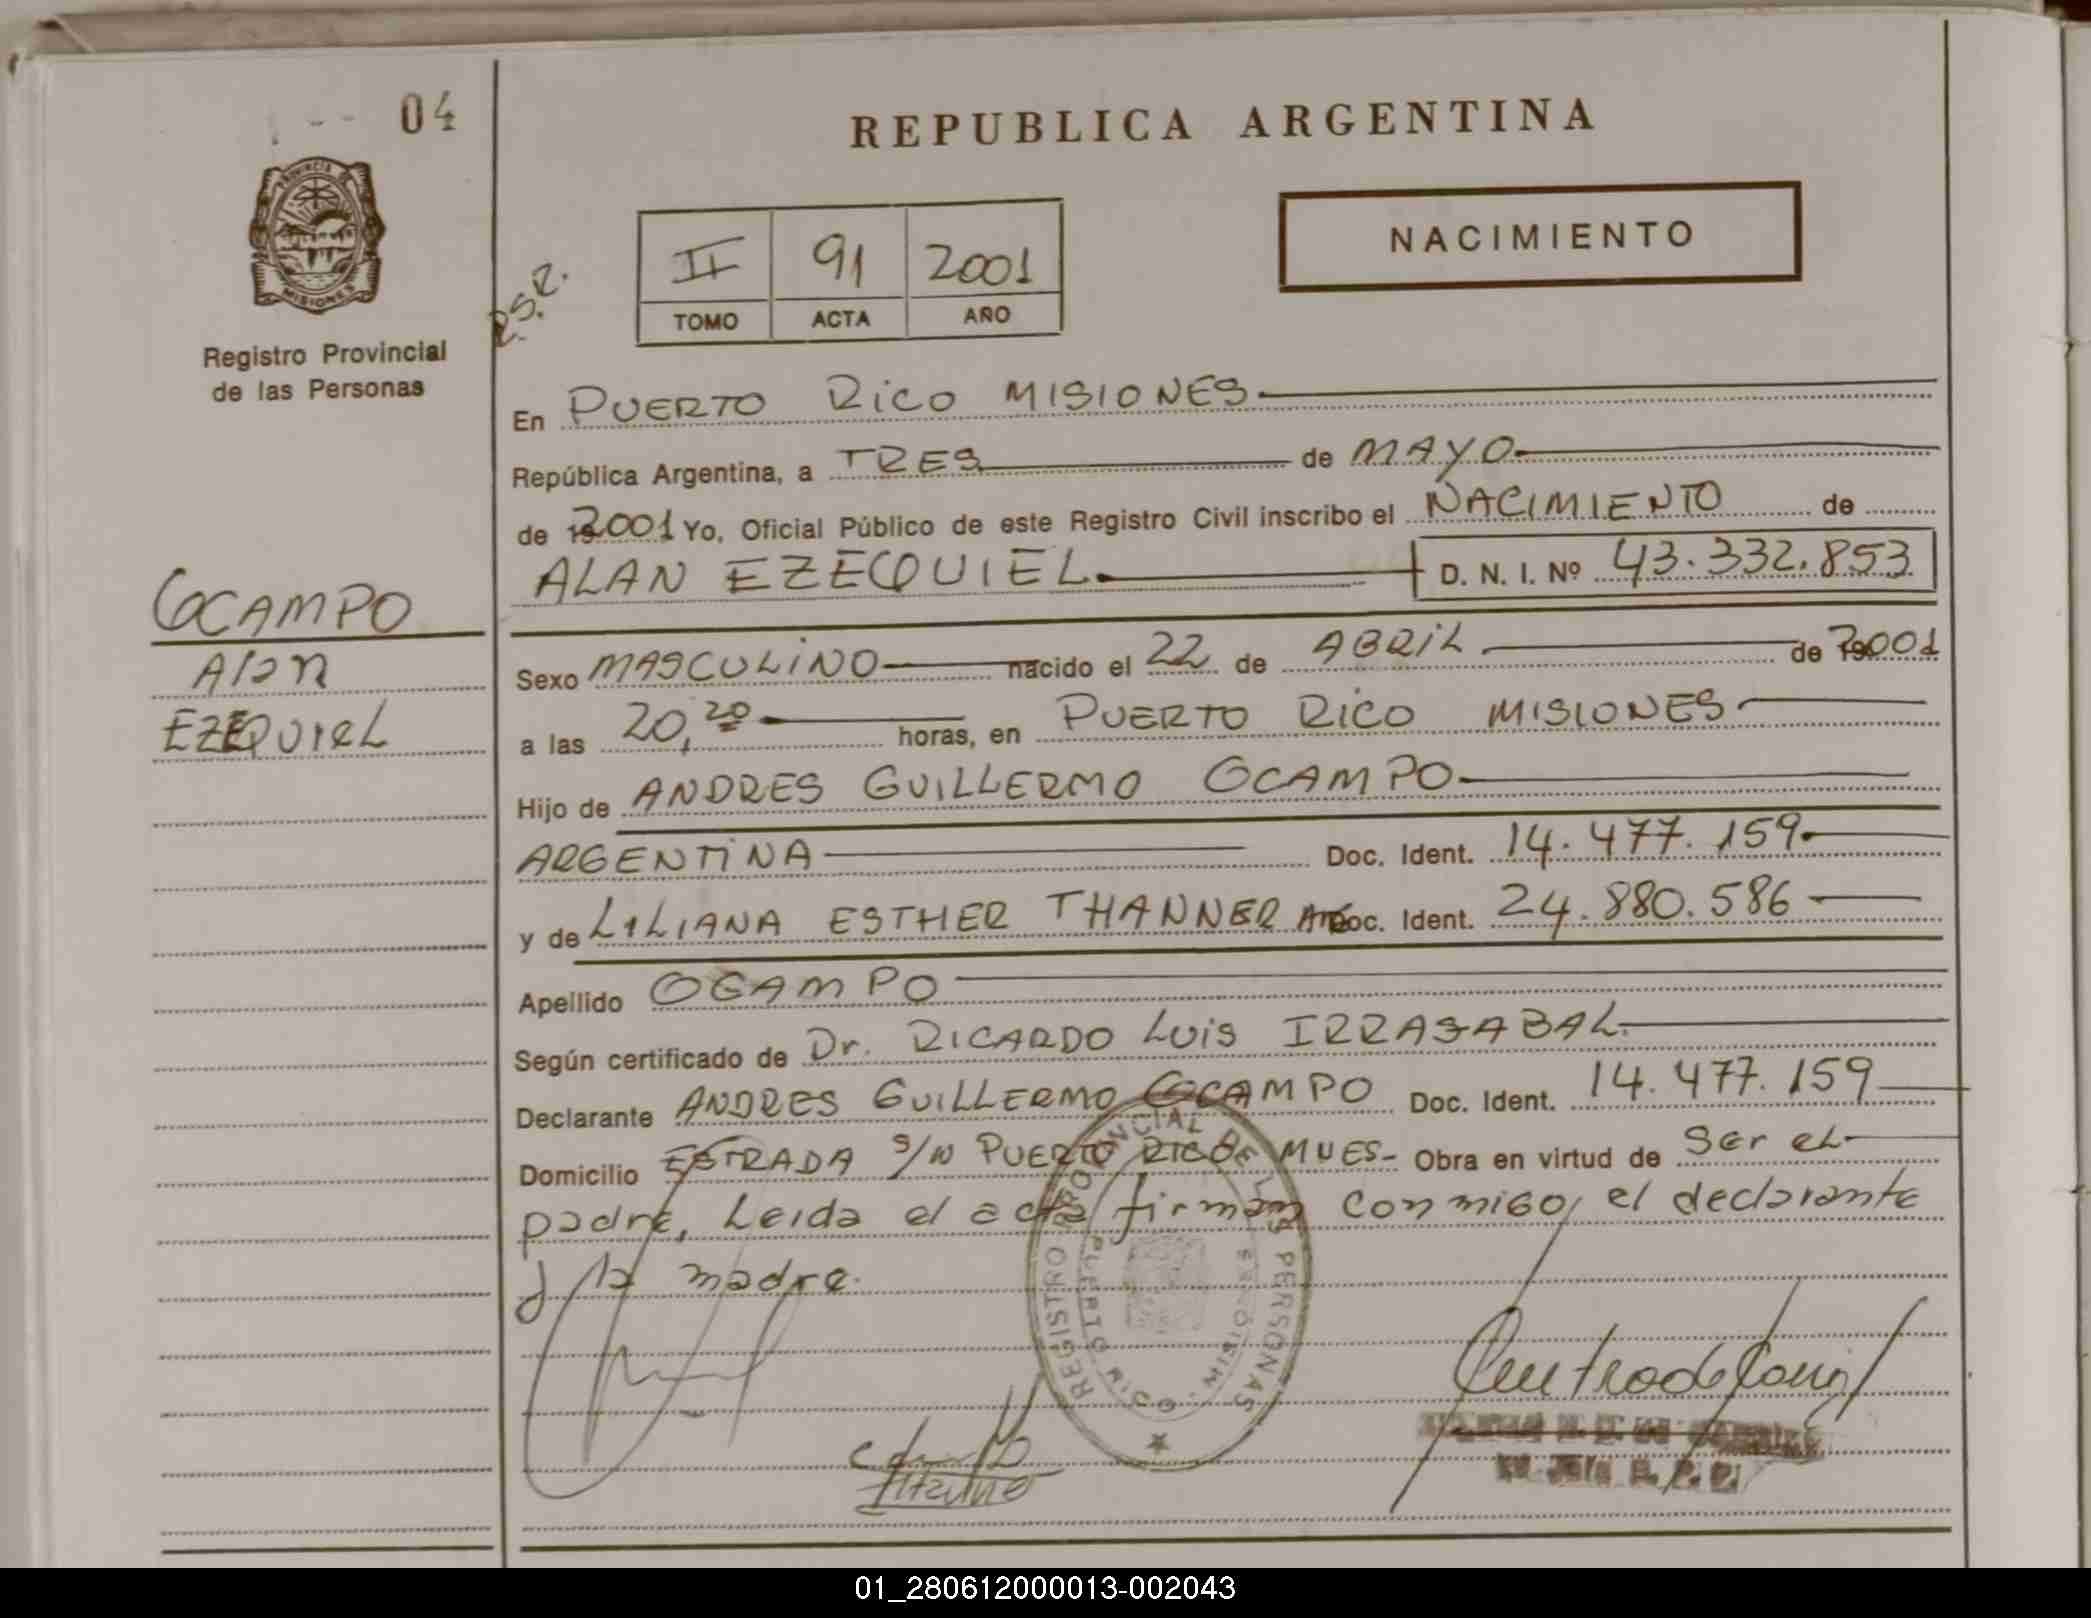 04
REPUBLICA ARGENTINA
PROVINCIA DE
MISIONES
Registro Provincial
de las Personas
R.S.R.
II 91 2001
TOMO ACTA AÑO
NACIMIENTO
En PUERTO RICO MISIONES
República Argentina, a TRES de MAYO
de 2001 Yo, Oficial Público de este Registro Civil inscribo el NACIMIENTO de
ALAN EZEQUIEL D. N. I. Nº 43.332.853
OCAMPO
Alan
EZEQUIEL
Sexo MASCULINO nacido el 22 de ABRIL de 2001
a las 20,20 horas, en PUERTO RICO MISIONES
Hijo de ANDRES GUILLERMO OCAMPO
ARGENTINA Doc. Ident. 14.477.159
y de LILIANA ESTHER THANNER Doc. Ident. 24.880.586
Apellido OCAMPO
Según certificado de Dr. RICARDO LUIS IRRASABAL
Declarante ANDRES GUILLERMO OCAMPO Doc. Ident. 14.477.159
Domicilio ESTRADA S/N PUERTO RICO MNES- Obra en virtud de Ser el
padre, Leida el acta firman conmigo, el declarante
y la madre.
REGISTRO PROVINCIAL DE LAS PERSONAS
PUERTO RICO - MISIONES
01_280612000013-002043